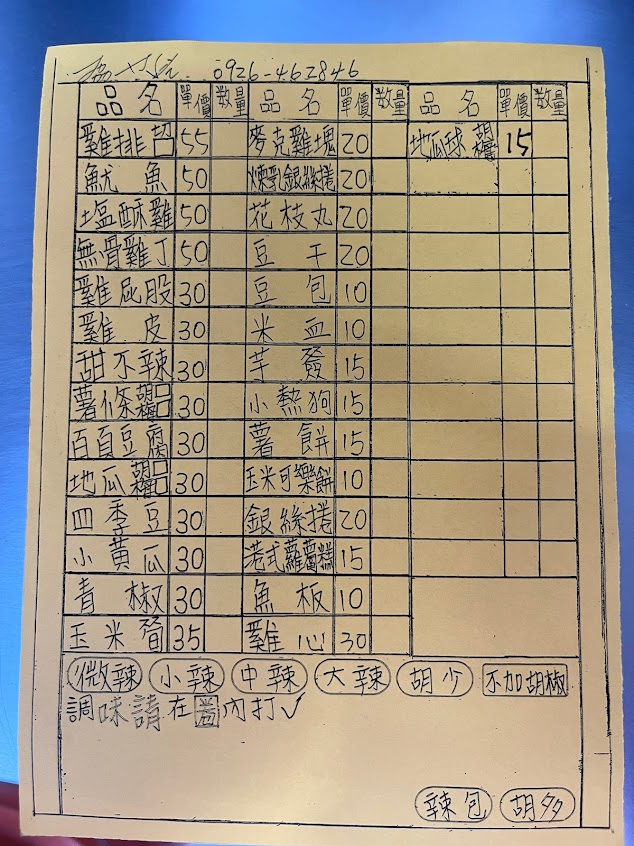 0926-462846
品名 單價 数量 品名 單價 数量 品名 單價 数量
雞排 55 麥克雞塊 20 地瓜球 胡 糖 15
魷魚 50 煉乳銀絲捲 20
塩酥雞 50 花枝丸 20
無骨雞丁 50 豆干 20
雞屁股 30 豆包 10
雞皮 30 米血 10
甜不辣 30 芋 15
薯條 胡 糖 30 小熱狗 15
百頁豆腐 30 薯餅 15
地瓜 胡 糖 30 玉米可樂餅 10
四季豆 30 銀絲捲 20
小黃瓜 30 港式蘿蔔糕 15
青椒 30 魚板 10
玉米 35 雞心 30
微辣 小辣 中辣 大辣 胡少 不加胡椒
調味請在圈內打✓
辣包 胡多